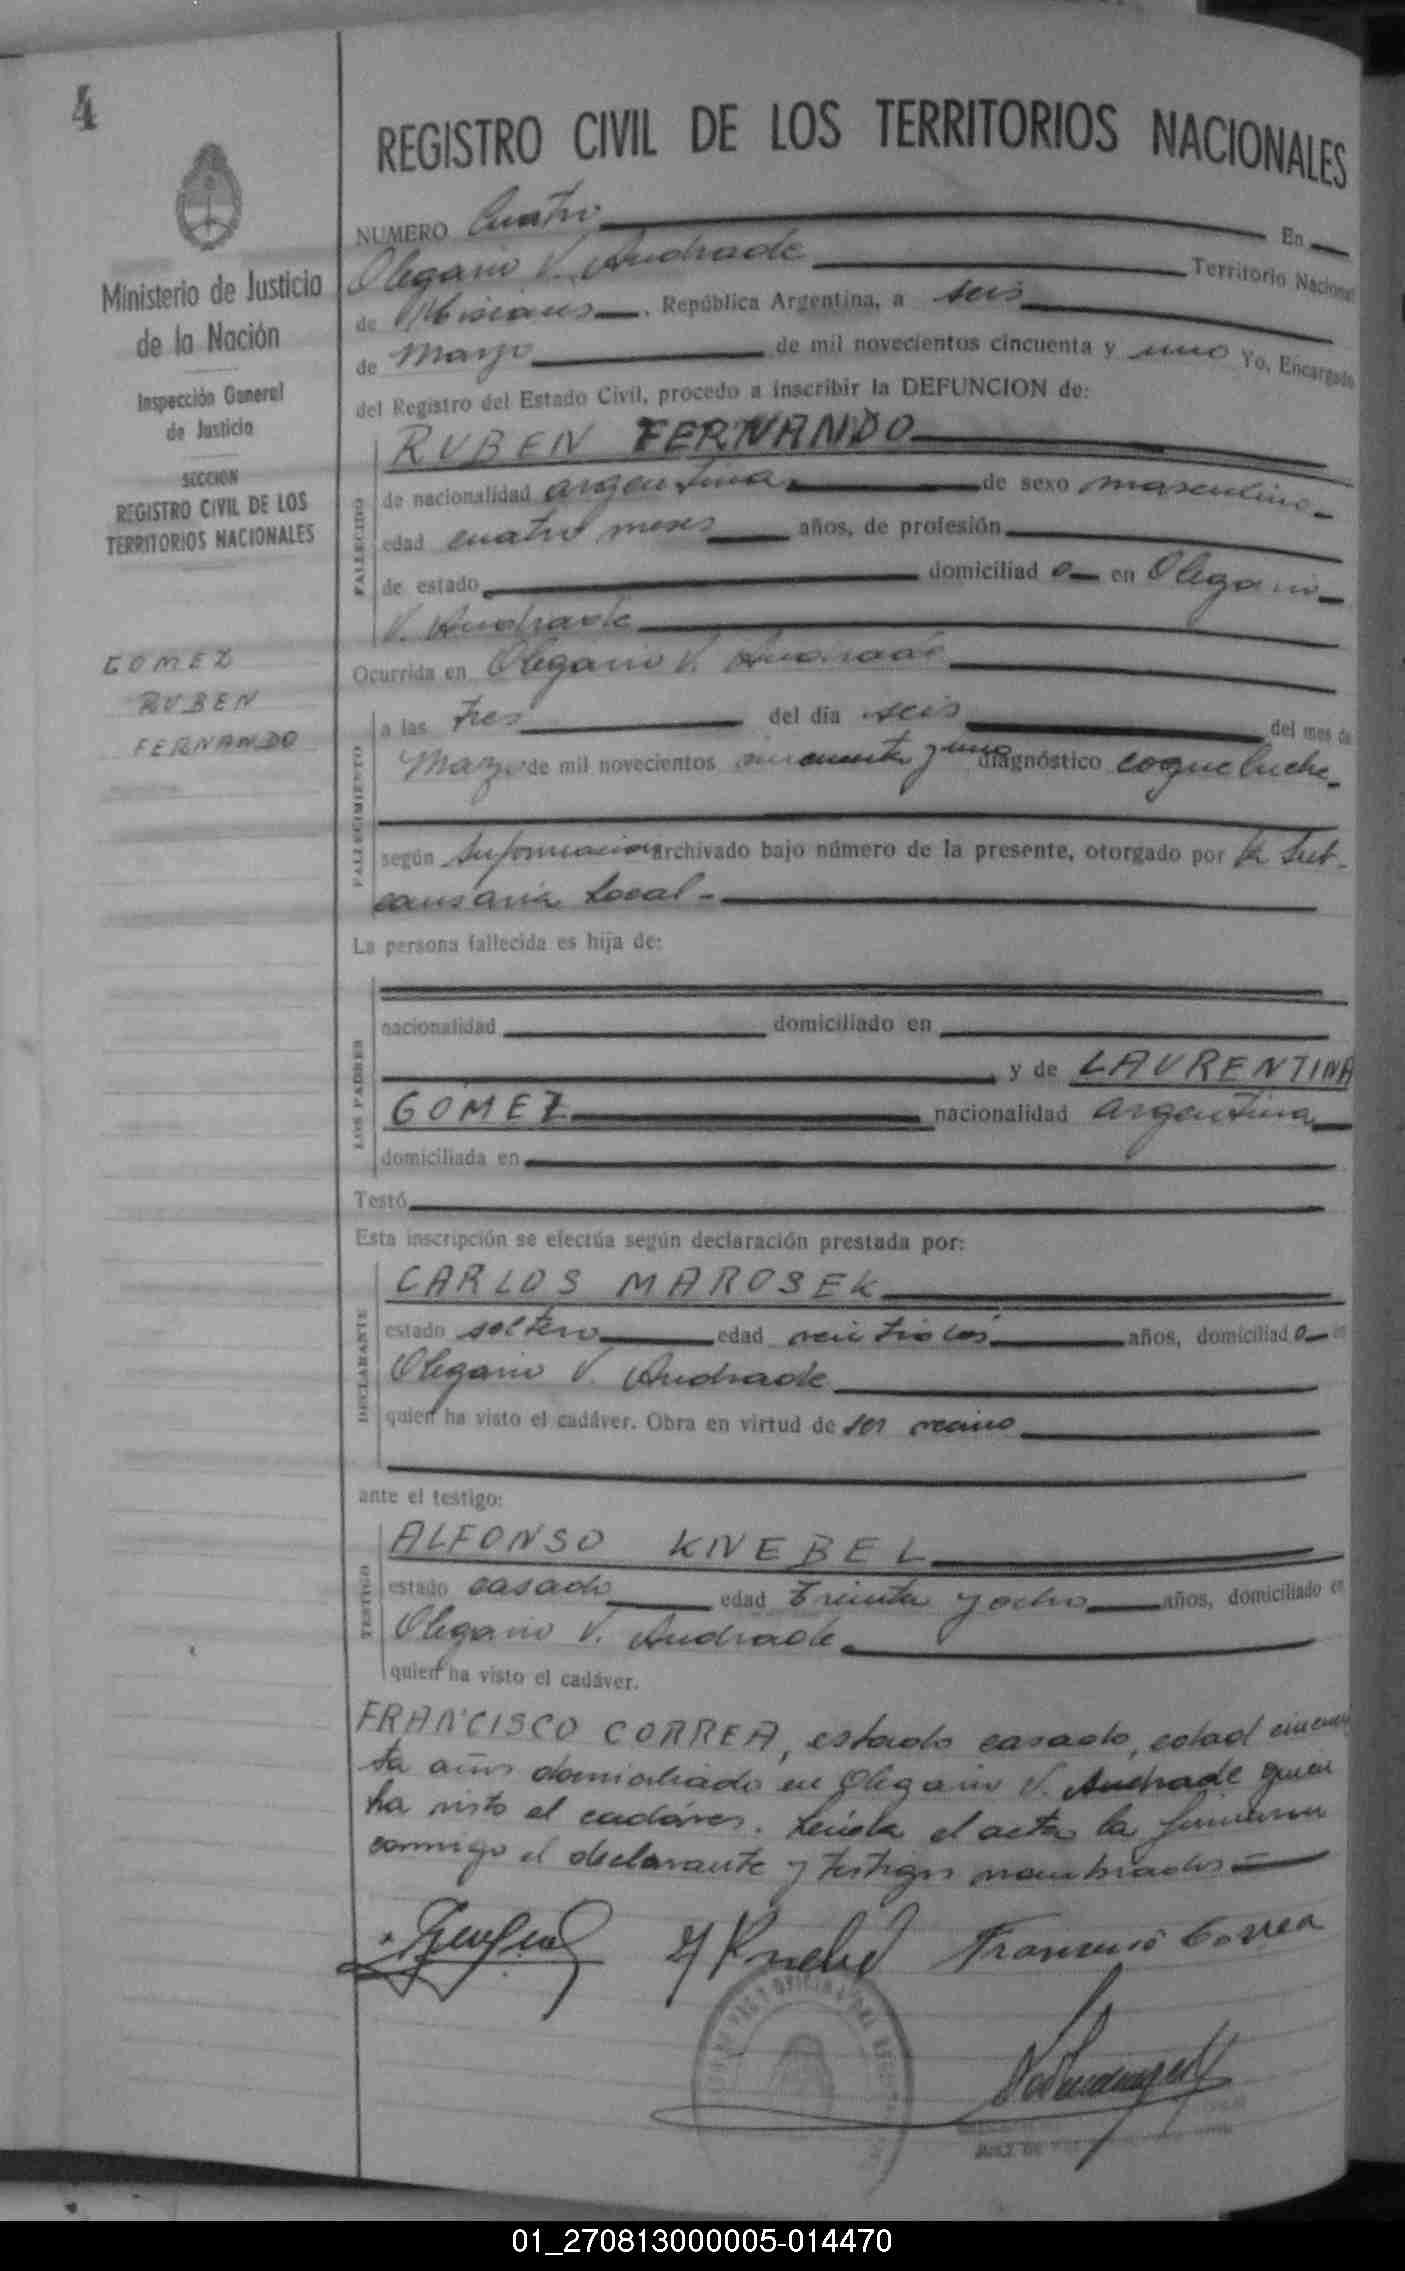 4
REGISTRO CIVIL DE LOS TERRITORIOS NACIONALES
Ministerio de Justicia
de la Nación
Inspección General
de Justicia
SECCION
REGISTRO CIVIL DE LOS
TERRITORIOS NACIONALES
GOMEZ
RUBEN
FERNANDO
NUMERO Cuatro En
Olegario V. Andrade Territorio Nacional
de Misiones. República Argentina, a seis
de Marzo de mil novecientos cincuenta y uno Yo, Encargado
del Registro del Estado Civil, procedo a inscribir la DEFUNCION de:
FALLECIDO
RUBEN FERNANDO
de nacionalidad argentina de sexo masculino
edad cuatro meses años, de profesión
de estado domiciliad o en Olegario
V. Andrade
Ocurrida en Olegario V. Andrade
FALLECIMIENTO
a las tres del día seis del mes de
Marzo de mil novecientos cincuenta y uno diagnóstico coqueluche
según informacion archivado bajo número de la presente, otorgado por la Sub-
Local
La persona fallecida es hija de:
LOS PADRES
nacionalidad domiciliado en
y de LAURENTINA
GOMEZ nacionalidad argentina
domiciliada en
Testó
Esta inscripción se efectúa según declaración prestada por:
DECLARANTE
CARLOS MAROSEK
estado soltero edad veintidos años, domiciliad o en
Olegario V. Andrade
quien ha visto el cadáver. Obra en virtud de ser vecino
ante el testigo:
TESTIGO
ALFONSO KNEBEL
estado casado edad treinta y ocho años, domiciliado en
Olegario V. Andrade
quien ha visto el cadáver.
FRANCISCO CORREA, estado casado, edad cincuen
ta años domiciliado en Olegario V. Andrade quien
ha visto el cadáver. Leída el acta la firmaron
conmigo el declarante y testigos nombrados
Knebel Francisco Correa
01_270813000005-014470